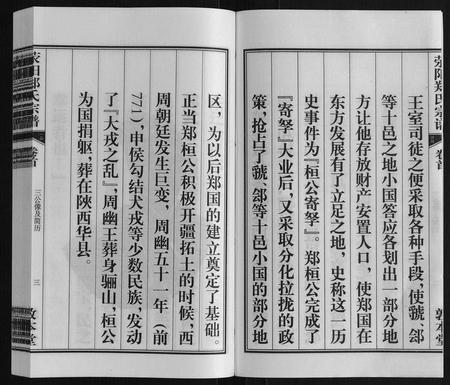 荥阳郑氏宗谱
卷首
敦本堂
王室司徒之便采取各种手段,使虢、郐
等十邑之地小国答应各划出一部分地
方让他存放财产安置人口,使郑国在
东方发展有了立足之地,史称这一历
史事件为『桓公寄孥』。郑桓公完成了
『寄孥』大业后,又采取分化拉拢的政
策,抢占了虢、郐等十邑小国的部分地
区,为以后郑国的建立奠定了基础。
正当郑桓公积极开疆拓土的时候,西
周朝廷发生巨变,周幽五十一年(前
771),申侯勾结犬戎等少数民族,发动
了『犬戎之乱』,周幽王葬身骊山,桓公
为国捐躯,葬在陕西华县。
卷首
三公像及简历
三
敦本堂